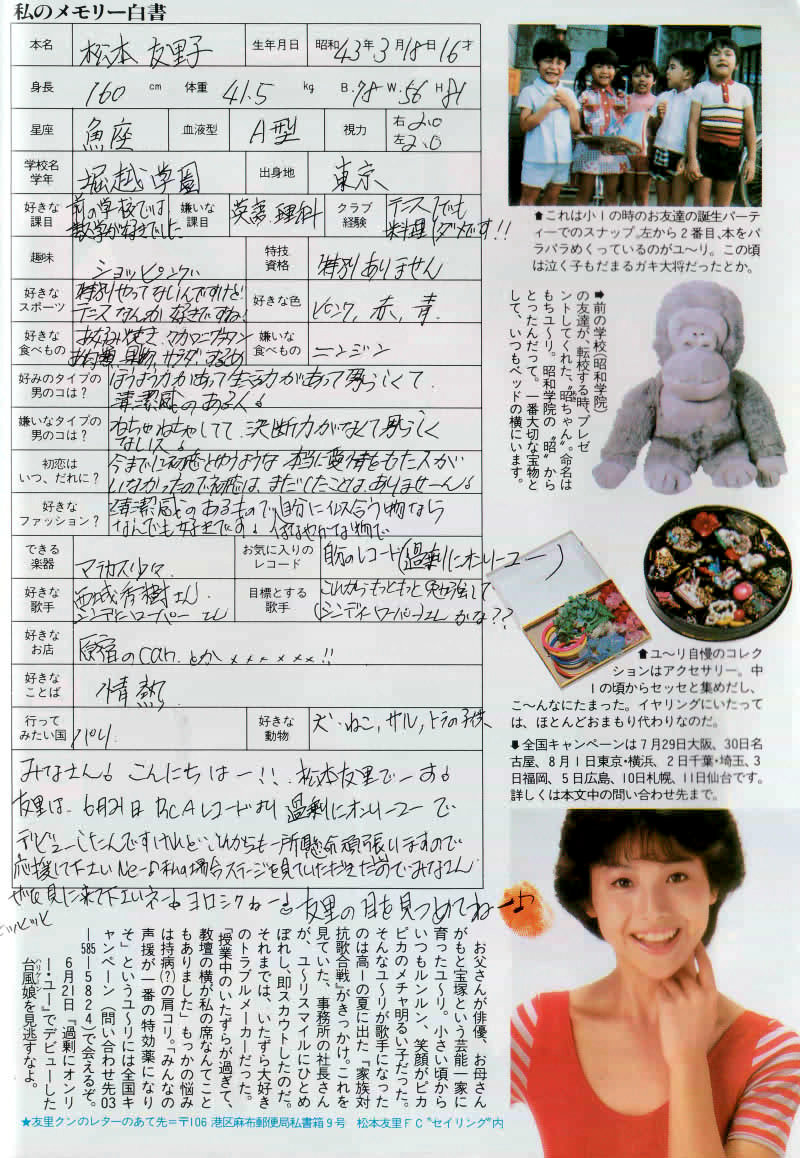 私のメモリー白書
本名 松本 友里子 生年月日 昭和43年3月18日16才
身長 160 cm 体重 41.5 kg B.78 W.56 H.81
星座 魚座 血液型 A型 視力 右2.0 左2.0
学校名 学年 堀越学園 出身地 東京
好きな課目 前の学校では数学が好きでした 嫌いな課目 英語.理科 クラブ経験 テニス!でも料理!ダメです!!
趣味 ショッピング 特技 資格 特別ありません
好きなスポーツ 特別やってないんですけど テニスなんか好きですね! 好きな色 ピンク、赤、青.
好きな食べもの お好み焼き.マカロニグラタン 果物.サラダ. 嫌いな食べもの ニンジン
好みのタイプの男のコは? ほうよう力があって生活力があって男らしくて.
清潔感のある人!
嫌いなタイプの男のコは? ねちゃねちゃしてて.決断力がなくて男らしく
ない人!
初恋はいつ、だれに? 今までに初恋とゆうような本当に愛情をもた人が
いなかったので初恋は、まだしたことはありませーん!
好きなファッション? 清潔感のあるもので自分に似合う物なら
なんでも好きです!
できる楽器 マラカス少々 お気に入りのレコード 自分のレコード(過剰にオンリーユー)
好きな歌手 西城秀樹さん シンディーローパーさん 目標とする歌手 これからもっともっと勉強して (シンディーローパー)さんかな??
好きなお店 原宿のcan.とか××××××!!
好きなことば 情熱
行ってみたい国 パリ 好きな動物 犬.ねこ,サル,トラの子供
みなさん!こんにちはー!!.松本友里でーす!
友里は、6月21日RCAレコードより過剰にオンリーユーで
デビューしたんですけれどこれからも一所懸命頑張いますので
応援して下さいNe〜♪私の場合ステージを見ていただきたいのでみなさん
ぜひ見に来て下さいネー ヨロシクねー! 友里の目を見つめてねー♪
⬆これは小1の時のお友達の誕生パーティーでのスナップ。左から2番目、本をパラパラめくっているのがユ〜リ。この頃は泣く子もだまるガキ大将だったとか。
➡前の学校(昭和学院)の友達が、転校する時、プレゼントしてくれた、“昭ちゃん”。命名はもちユ〜リ。昭和学院の“昭”からとったんだって。一番大切な宝物として、いつもベッドの横にいます。
⬆ユ〜リ自慢のコレクションはアクセサリー。中1の頃からセッセと集めだし、こ〜んなにたまった。イヤリングにいたっては、ほとんどおまもり代わりなのだ。
⬇全国キャンペーンは7月29日大阪、30日名古屋、8月1日東京・横浜、2日千葉・埼玉、3日福岡、5日広島、10日札幌、11日仙台です。詳しくは本文中の問い合わせ先まで。
お父さんが俳優、お母さんがもと宝塚という芸能一家に育ったユ〜リ。小さい頃からいつもルンルン、笑顔がピカピカのメチャ明るい子だった。
そんなユ〜リが歌手になったのは高1の夏に出た『家族対抗歌合戦』がきっかけ。これを見ていた、事務所の社長さんが、ユ〜リスマイルにひとめぼれし、即スカウトしたのだ。
それまでは、いたずら大好きのトラブルメーカーだった。「授業中のいたずらが過ぎて、教壇の横が私の席なんてこともありました」もっかの悩みは持病(?)の肩コリ。「みんなの声援が一番の特効薬になりそ」というユ〜リには全国キャンペーン(問い合わせ先03―585―5824)で会えるぞ。
6月21日『過剰にオンリー・ユー』でデビューした台風娘を見逃すなよ。
ハリケーン
★友里クンのレターのあて先=〒106 港区麻布郵便局私書箱9号 松本友里FC“セイリング”内